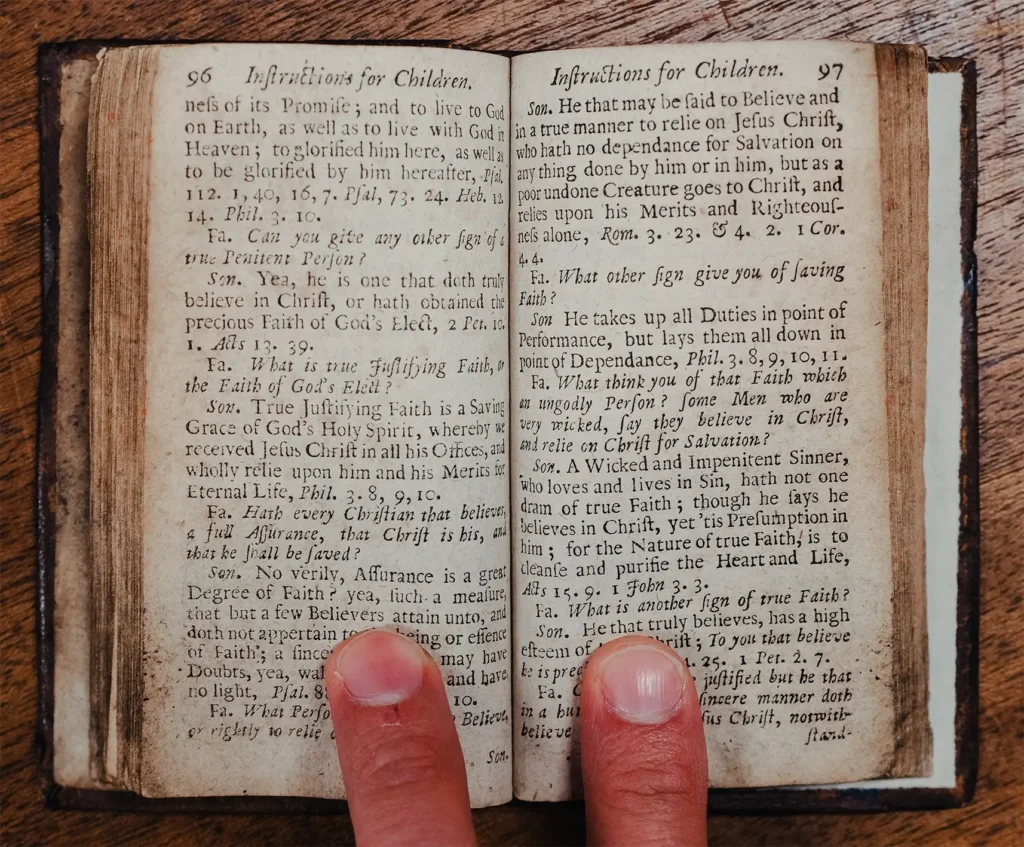 96 Inſtructions for Children.
neſs of its Promiſe; and to live to God
on Earth, as well as to live with God in
Heaven; to glorified him here, as well as
to be glorified by him hereafter, Pſal.
112. 1, 40, 16, 7. Pſal, 73. 24. Heb. 12
14. Phil. 3. 10.
Fa. Can you give any other ſign of a
true Penitent Perſon?
Son. Yea, he is one that doth truly
believe in Chriſt, or hath obtained the
precious Faith of God's Elect, 2 Pet. 10.
1. Acts 13. 39.
Fa. What is true Juſtifying Faith, or
the Faith of God's Elect?
Son. True Juſtifying Faith is a Saving
Grace of God's Holy Spirit, whereby we
received Jeſus Chriſt in all his Offices, and
wholly relie upon him and his Merits for
Eternal Life, Phil. 3. 8, 9, 10.
Fa. Hath every Chriſtian that believes,
a full Aſſurance, that Chriſt is his, and
that he ſhall be ſaved?
Son. No verily, Aſſurance is a great
Degree of Faith? yea, ſuch a meaſure,
that but a few Believers attain unto, and
doth not appertain to being or eſſence
of Faith; a may have
Doubts, yea, and have
no light, Pſal. 10.
Fa. What Believe,
or rightly to relie
Son.
Inſtructions for Children. 97
Son. He that may be ſaid to Believe and
in a true manner to relie on Jeſus Chriſt,
who hath no dependance for Salvation on
any thing done by him or in him, but as a
poor undone Creature goes to Chriſt, and
relies upon his Merits and Righteouſ-
neſs alone, Rom. 3. 23. & 4. 2. 1 Cor.
4. 4.
Fa. What other ſign give you of ſaving
Faith?
Son He takes up all Duties in point of
Performance, but lays them all down in
point of Dependance, Phil. 3. 8, 9, 10, 11.
Fa. What think you of that Faith which
an ungodly Perſon? ſome Men who are
very wicked, ſay they believe in Chriſt,
and relie on Chriſt for Salvation?
Son. A Wicked and Impenitent Sinner,
who loves and lives in Sin, hath not one
dram of true Faith; though he ſays he
believes in Chriſt, yet 'tis Preſumption in
him; for the Nature of true Faith, is to
cleanſe and purifie the Heart and Life,
Acts 15. 9. 1 John 3. 3.
Fa. What is another ſign of true Faith?
Son. He that truly believes, has a high
eſteem of Chriſt; To you that believe
he is 25. 1 Pet. 2. 7.
Fa. juſtified but he that
in a ſincere manner doth
believe Chriſt, notwith-
ſtand-